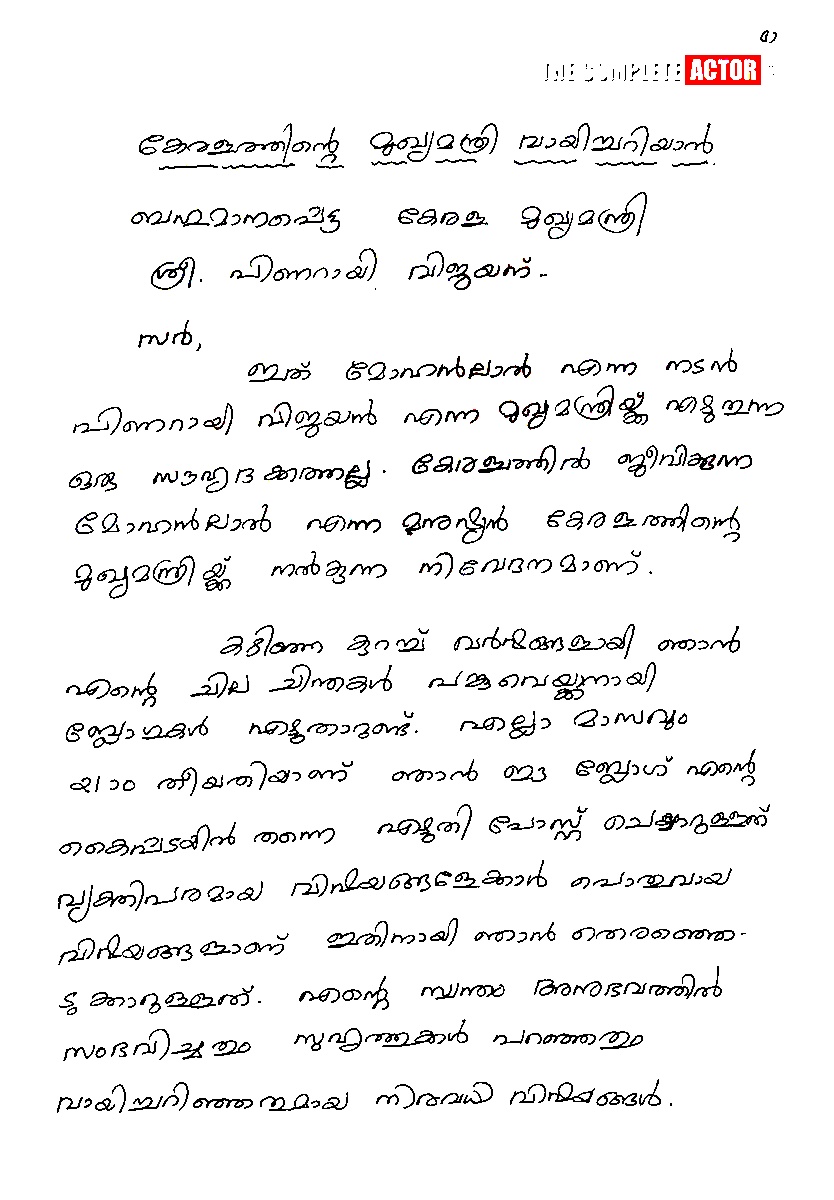 THE COMPLETE ACTOR
കേരളത്തിന്റെ മുഖ്യമന്ത്രി വായിച്ചറിയാൻ
ബഹുമാനപ്പെട്ട കേരള മുഖ്യമന്ത്രി
ശ്രീ. പിണറായി വിജയന് -
സർ,
ഇത് മോഹൻലാൽ എന്ന നടൻ
പിണറായി വിജയൻ എന്ന മുഖ്യമന്ത്രിയ്ക്ക് എഴുതുന്ന
ഒരു സൗഹൃദ കത്തല്ല. കേരളത്തിൽ ജീവിക്കുന്ന
മോഹൻലാൽ എന്ന മനുഷ്യൻ കേരളത്തിന്റെ
മുഖ്യമന്ത്രിയ്ക്ക് നൽകുന്ന നിവേദനമാണ്.
കഴിഞ്ഞ കുറച്ച് വർഷങ്ങളായി ഞാൻ
എന്റെ ചില ചിന്തകൾ പങ്കുവെയ്ക്കുന്നതായി
ബ്ലോഗുകൾ എഴുതാറുണ്ട്. എല്ലാ മാസവും
൨൧ാം തീയതിയാണ് ഞാൻ ഈ ബ്ലോഗ് എന്റെ
കൈപ്പടയിൽ തന്നെ എഴുതി പോസ്റ്റ് ചെയ്യാറുള്ളത്
വ്യക്തിപരമായ വിഷയങ്ങളേക്കാൾ പൊതുവായ
വിഷയങ്ങളാണ് ഇതിനായി ഞാൻ തെരഞ്ഞെ-
ടുക്കാറുള്ളത്. എന്റെ സ്വന്തം അനുഭവത്തിൽ
സംഭവിച്ചതും സുഹൃത്തുക്കൾ പറഞ്ഞതും
വായിച്ചറിഞ്ഞതുമായ നിരവധി വിഷയങ്ങൾ.